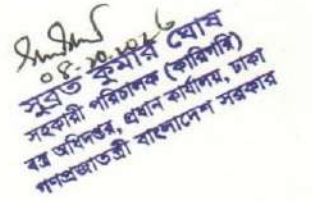 ০৪.১০.২০২৬
সুব্রত কুমার ঘোষ
সহকারী পরিচালক (কারিগরি)
বস্ত্র অধিদপ্তর, প্রধান কার্যালয়, ঢাকা
গণপ্রজাতন্ত্রী বাংলাদেশ সরকার